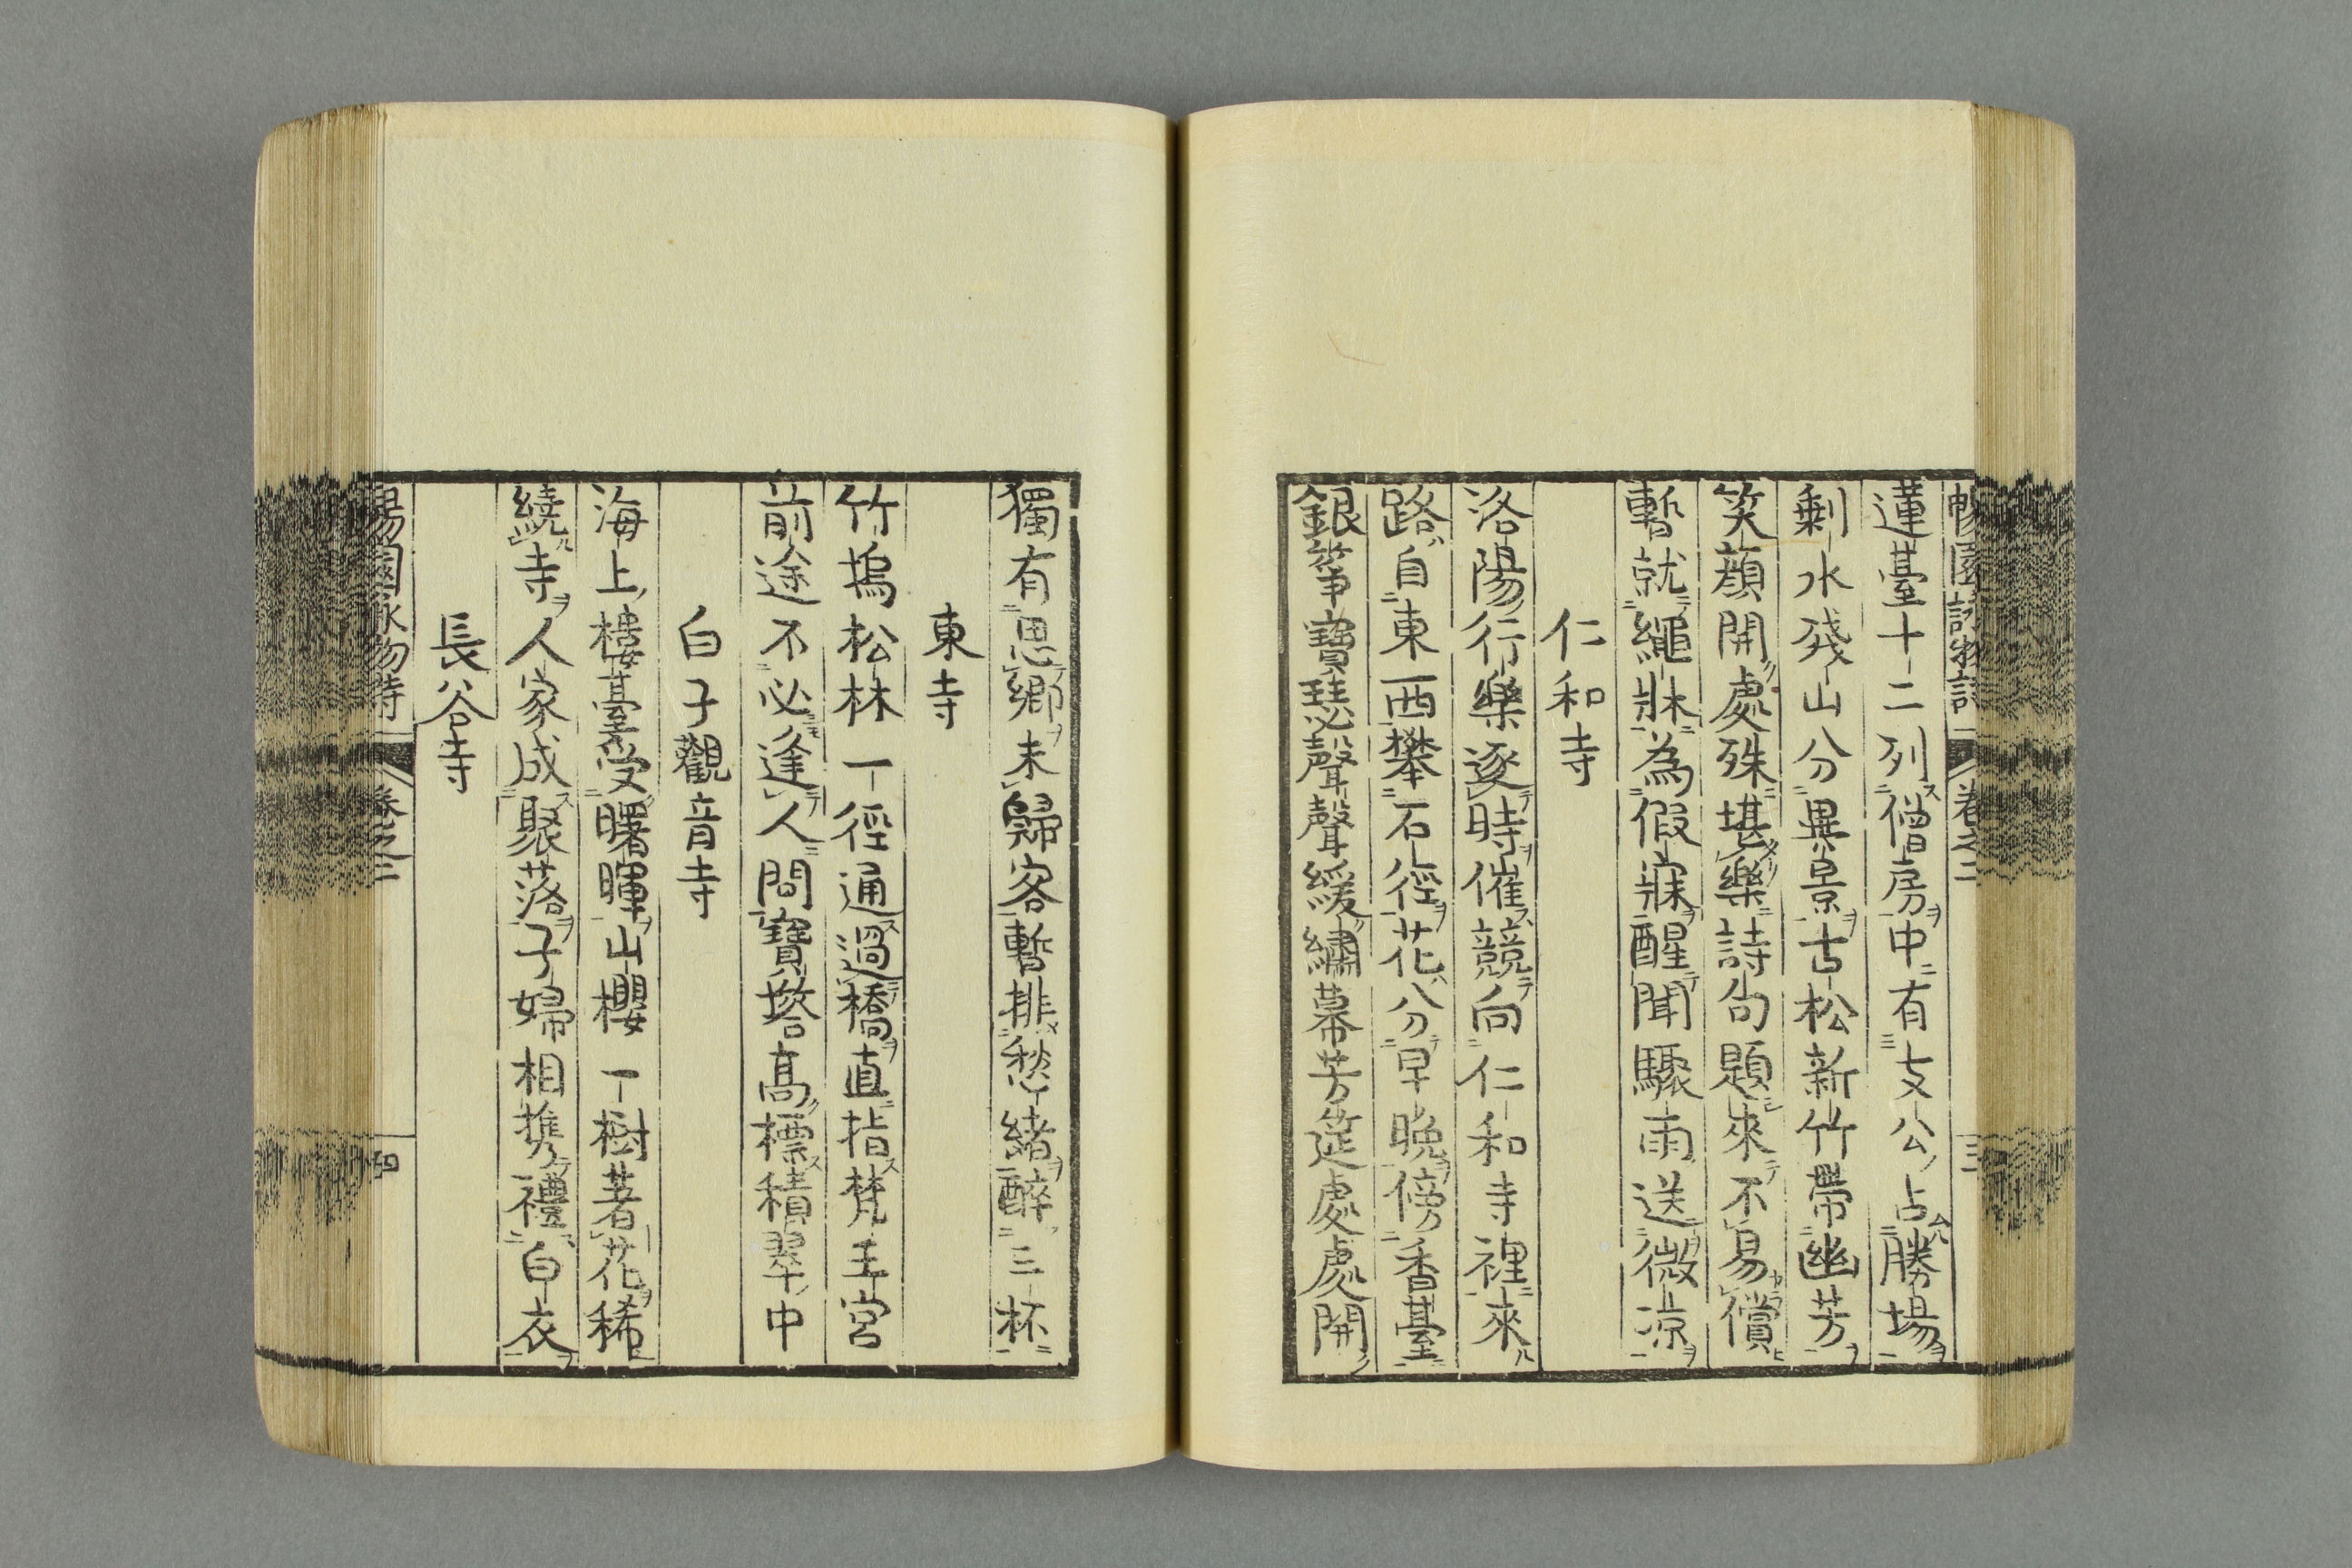 暢園詠物詩 卷之二 三
蓮臺十二列僧房中有文公占勝場
剩水殘山分異景古松新竹帶幽芳
笑顔開處殊堪樂詩句題來不易償
暫就繩牀為假寐醒聞驟雨送微涼
仁和寺
洛陽行樂逐時催競向仁和寺裡來
路自東西攀石徑花分早晚傍香臺
銀箏寶瑟聲聲緩繡幕芳筵處處開
獨有思鄉未歸客暫排愁緒醉三杯
東寺
竹塢松林一徑通過橋直指梵王宮
前途不必逢人問寶塔高標積翠中
白子觀音寺
海上樓臺受曙暉山櫻一樹著花稀
繞寺人家成聚落子婦相攜禮白衣
長谷寺
暢園詠物詩 卷之二 四